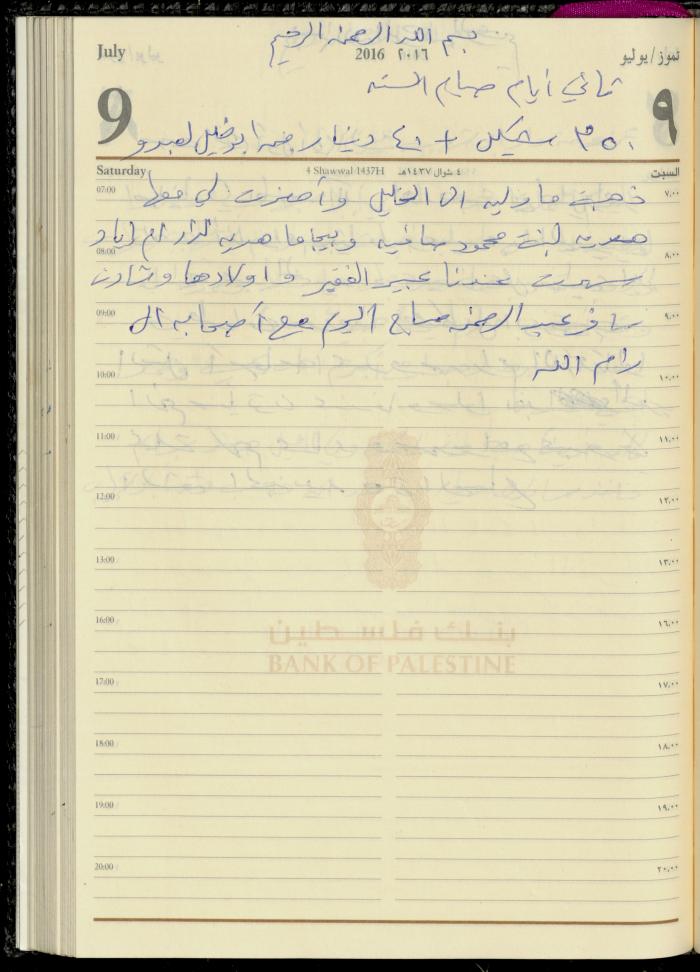 بسم الله الرحمن الرحيم
July 2016 ٢٠١٦ تموز/يوليو
ثماني أيام صيام السته
9 ٩
٣٥٠ شيكل + ٤١ دينار من ابو خليل لعبدو
Saturday 4 Shawwal 1437H ٤ شوال ١٤٣٧هـ السبت
07:00 ٧,٠٠
ذهبت ماوليه الى الخليل وأحضرت لي معها
هديه لبنت محمود صافيه وبيجاما هديه لنزار ام إياد
08:00 ٨,٠٠
سهرت عندنا عبير الفقير واولادها وشادن
09:00 ٩,٠٠
سافر عبد الرحمن صباح اليوم مع أصحابه الى
رام الله
10:00 ١٠,٠٠
11:00 ١١,٠٠
12:00 ١٢,٠٠
13:00 ١٣,٠٠
بنك فلسطين
BANK OF PALESTINE
16:00 ١٦,٠٠
17:00 ١٧,٠٠
18:00 ١٨,٠٠
19:00 ١٩,٠٠
20:00 ٢٠,٠٠